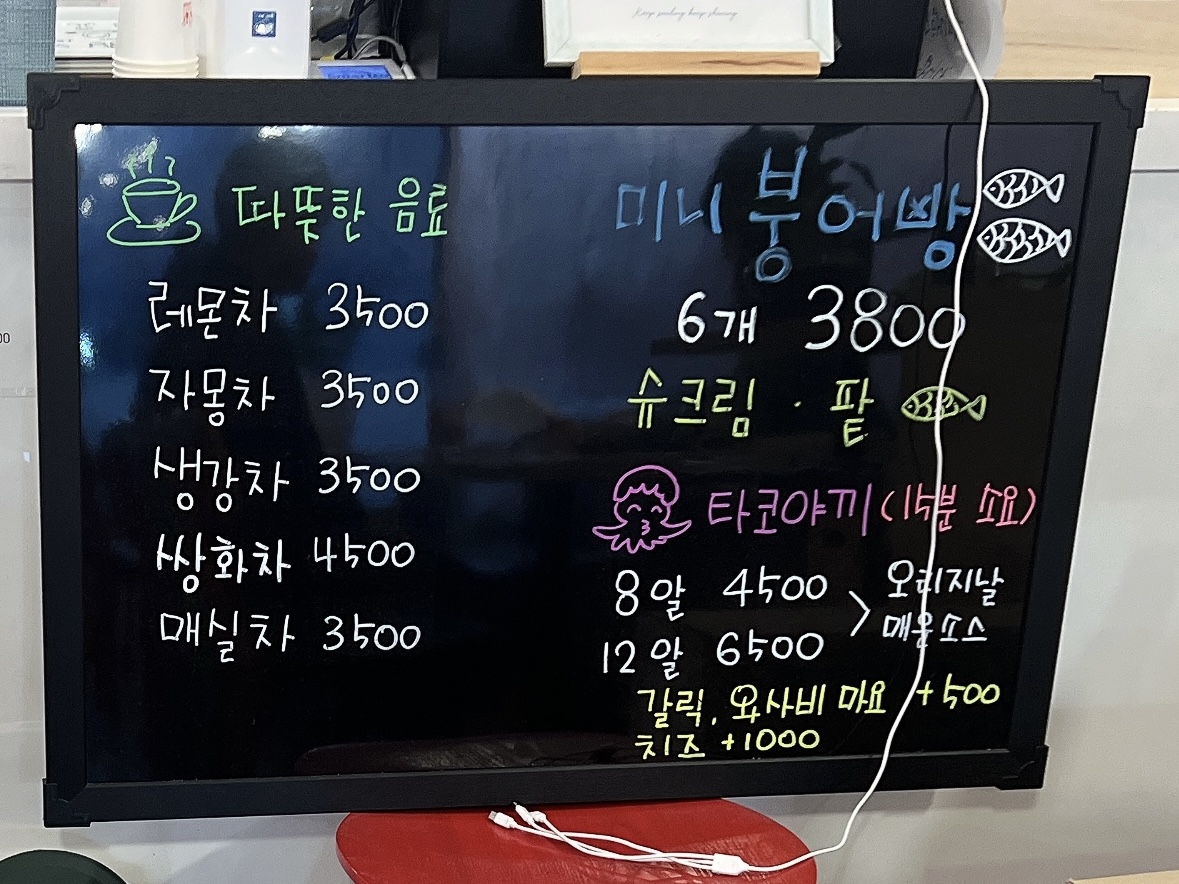 Keep smiling keep shining
따뜻한 음료
레몬차 3500
자몽차 3500
생강차 3500
쌍화차 4500
매실차 3500
미니 붕어빵
6개 3800
슈크림 · 팥
타코야끼 (15분 소요)
8알 4500
12알 6500
> 오리지날
매운소스
갈릭, 와사비 마요 +500
치즈 +1000